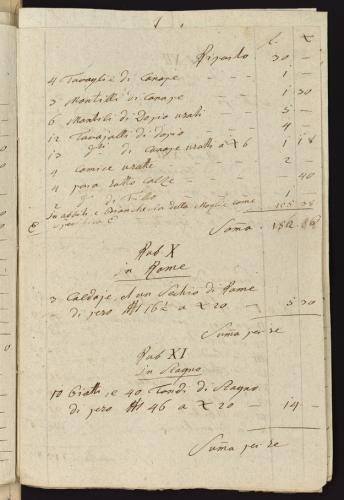 f. X
Riporto 30 –
4 Tovaglie di Canape 1 –
3 Mantilli di Canape 1 30
6 Mantili di Dopio usati 5 –
12 Tovajolli di dopio 4 –
13 di Canape usatti a X 6 1 18
4 Camice usatte 2 –
4 para sotto Calze – 40
2 di 1
In abbiti, e Biancheria della Moglie come 105 38
E
Soma . 152. 86
Rub X
in Rame
3 Caldaje, et un Sechio di Rame
di pezo 16½ a X 20 – 5 30
Suma per se
Rub XI
in Stagno
10 Piatti, e 40 Tondi di Stagno
di pezo 46 a X 20 14 –
Suma per se